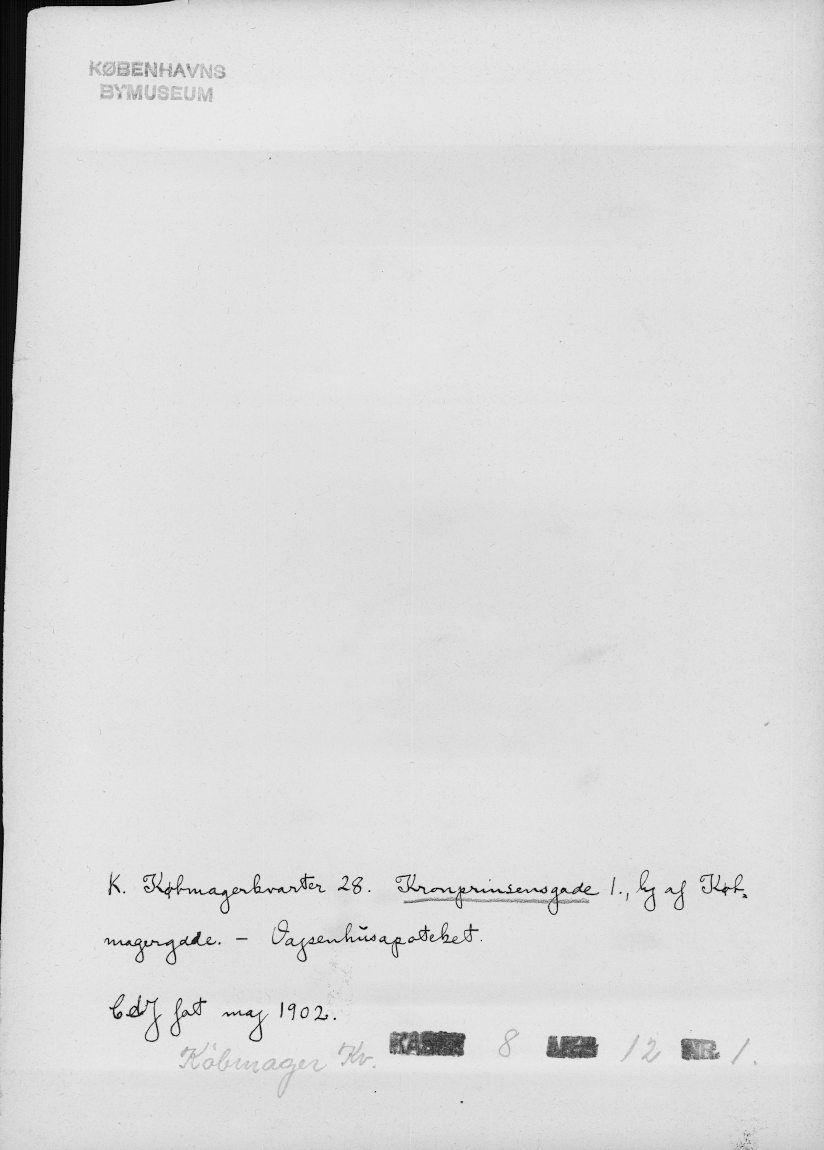 KØBENHAVNS
BYMUSEUM
K. Købmagerkvarter 28. Kronprinsensgade 1., hj af Køb-
magergade. – Vajsenhusapoteket.
fot maj 1902.
Købmager Kv. 8 12 NR. 1.